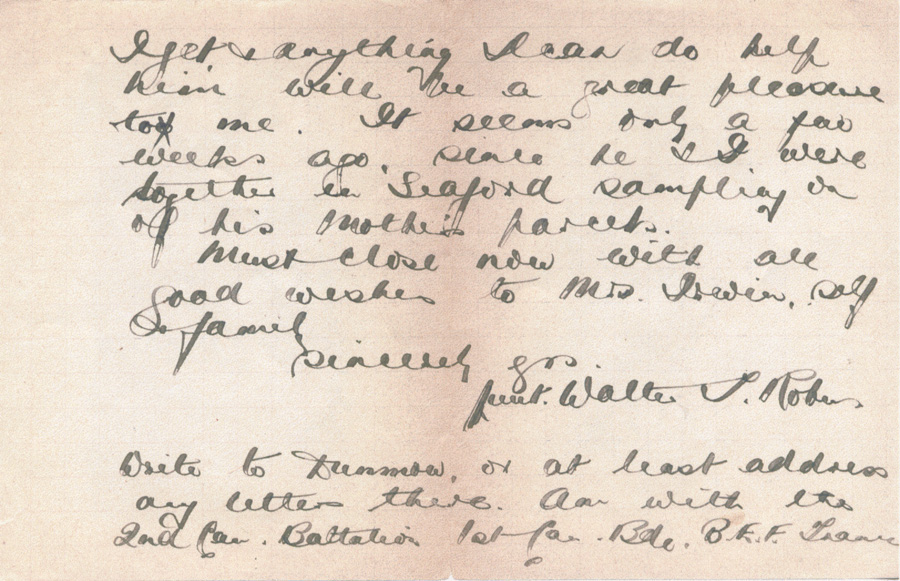 I get & anything I can do help
him will be a great pleasure
to me. It seems only a few
weeks ago, since he & I were
together in Seaford sampling on
of his Mothers parcels.
Must close now with all
good wishes to Mrs. Irwin, self
& family
Sincerely yrs.
Lieut. Walter S. Robins
Write to Dunmow, or at least address
any letters there. Am with the
2nd Can. Battalion 1st Can. Bde. B.E.F. France